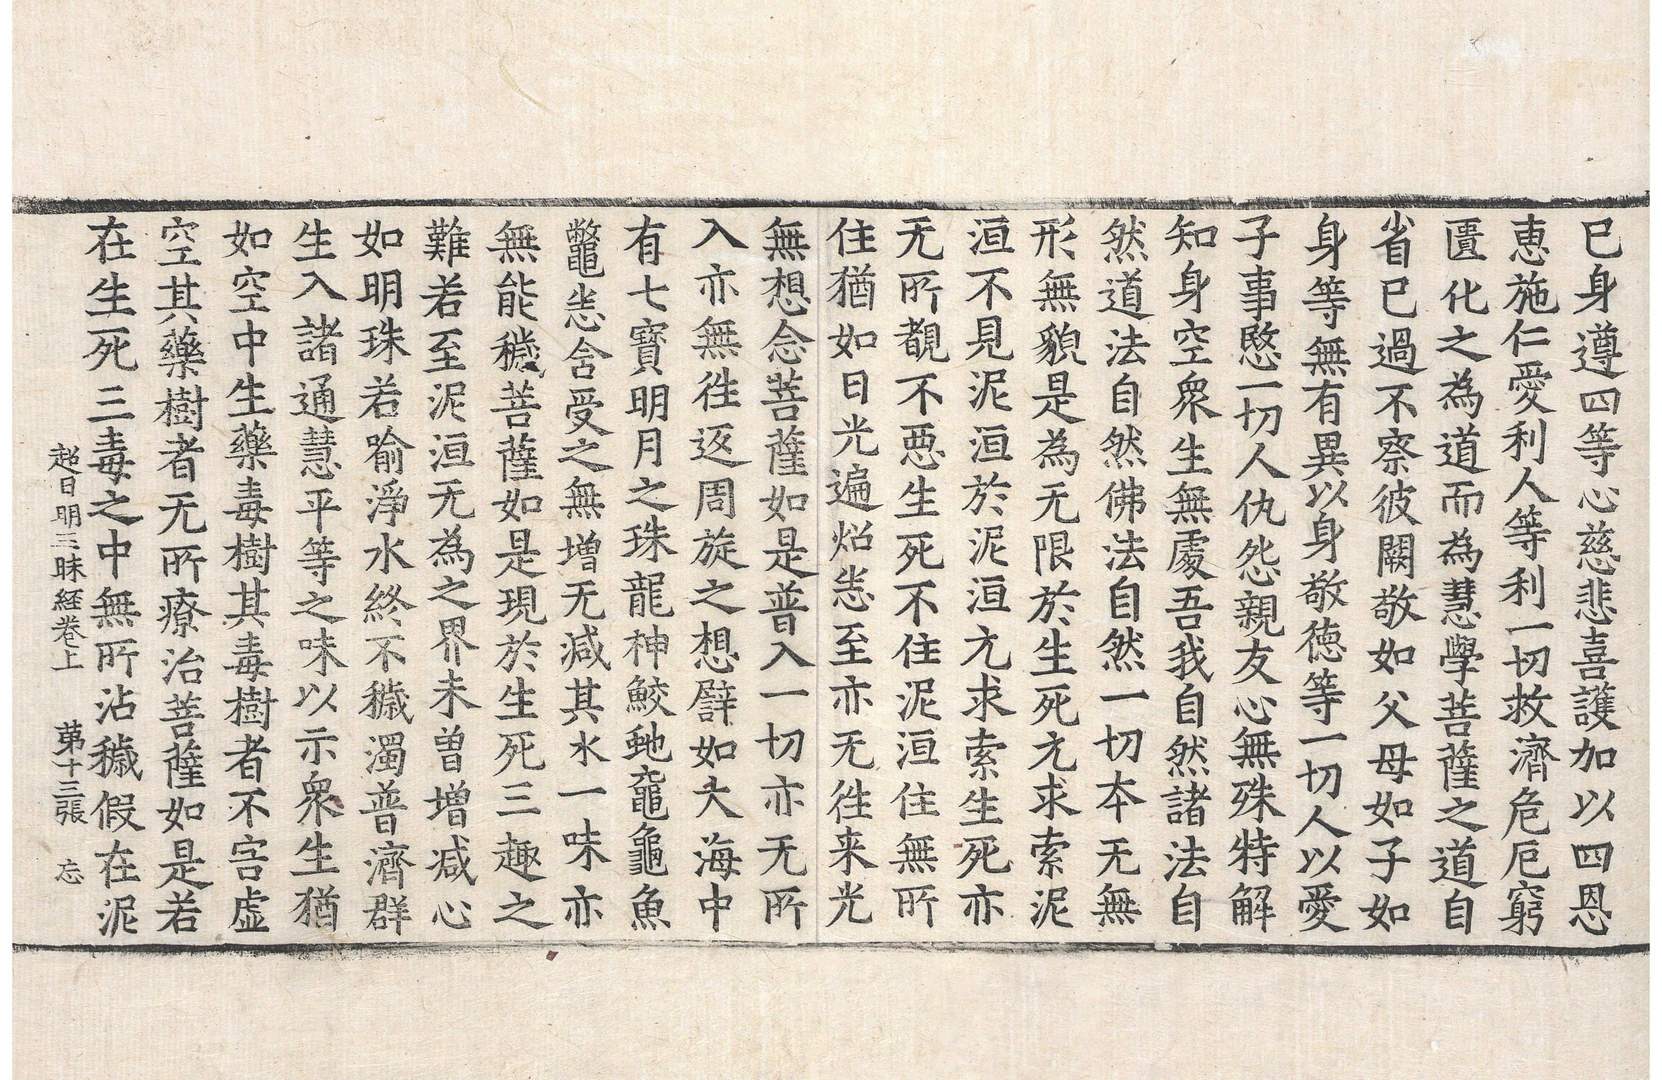 已身遵四等心慈悲喜護加以四恩
恵施仁愛利人等利一切救濟危厄窮
匱化之為道而為慧學菩薩之道自
省已過不察彼闕敬如父母如子如
身等無有異以身敬德等一切人以愛
子事愍一切人仇怨親友心無殊特解
知身空衆生無處吾我自然諸法自
然道法自然佛法自然一切本无無
形無貌是為无限於生死亢求索泥
洹不見泥洹於泥洹亢求索生死亦
无所覩不惡生死不住泥洹住無所
住猶如日光遍炤悉至亦无往来光
無想念菩薩如是普入一切亦无所
入亦無往返周旋之想譬如大海中
有七寶明月之珠龍神鮫虵黿龜魚
鼈悉含受之無增无減其水一味亦
無能穢菩薩如是現於生死三趣之
難若至泥洹无為之界未曽增減心
如明珠若喻淨水終不穢濁普濟群
生入諸通慧平等之味以示衆生猶
如空中生藥毒樹其毒樹者不害虛
空其藥樹者无所療治菩薩如是若
在生死三毒之中無所沾穢假在泥
超日明三昧経卷上　第十三張　忘